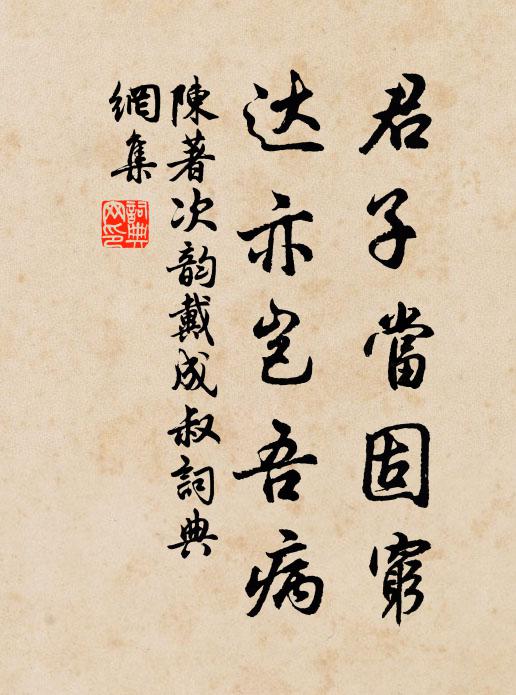 君子當固窮
达亦岂吾病
陳著次韵戴成叔詞典
網集
詞典
网印